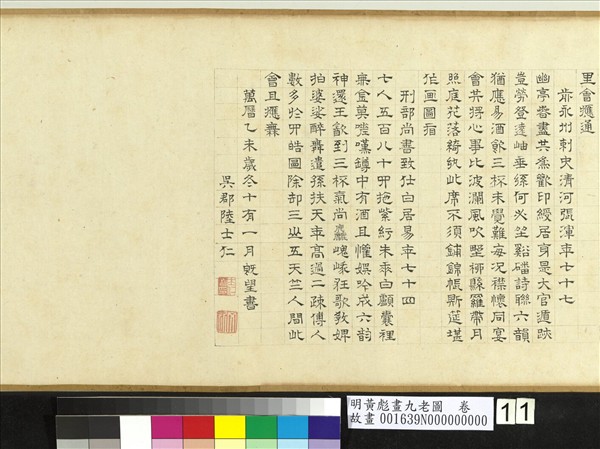 里會應通
前永州刺史清河張渾年七十七
幽亭春盡共為歡印綬居身是大官遁跡
豈勞登遠岫垂絲何必坐谿磻詩聯六韻
猶應易酒飲三杯未覺難每況襟懷同宴
會共將心事比波瀾風吹野柳懸羅帶月
照庭花落綺紈此席不須鋪錦帳斯筵堪
作画圖看
刑部尚書致仕白居易年七十四
七人五百八十四拖紫紆朱垂白鬚囊裡
無金莫嗟嘆罇中有酒且懽娛吟成六韵
神還王飲到三杯氣尚麤嵬峩狂歌教婢
拍婆娑醉舞遣孫扶天年高過二疎傅人
數多於四皓圖除却三山五天竺人間此
會且應無
萬曆乙未歲冬十有一月旣望書
吳郡陸士仁
明黃彪畫九老圖 卷
故畫 001639N000000000
11